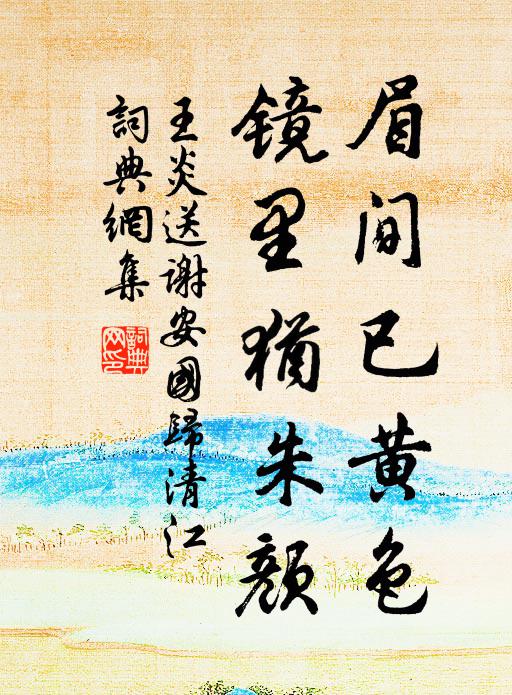 眉间已黄色
镜里猶朱颜
王炎送谢安國歸清江
詞典網集
詞典
网印